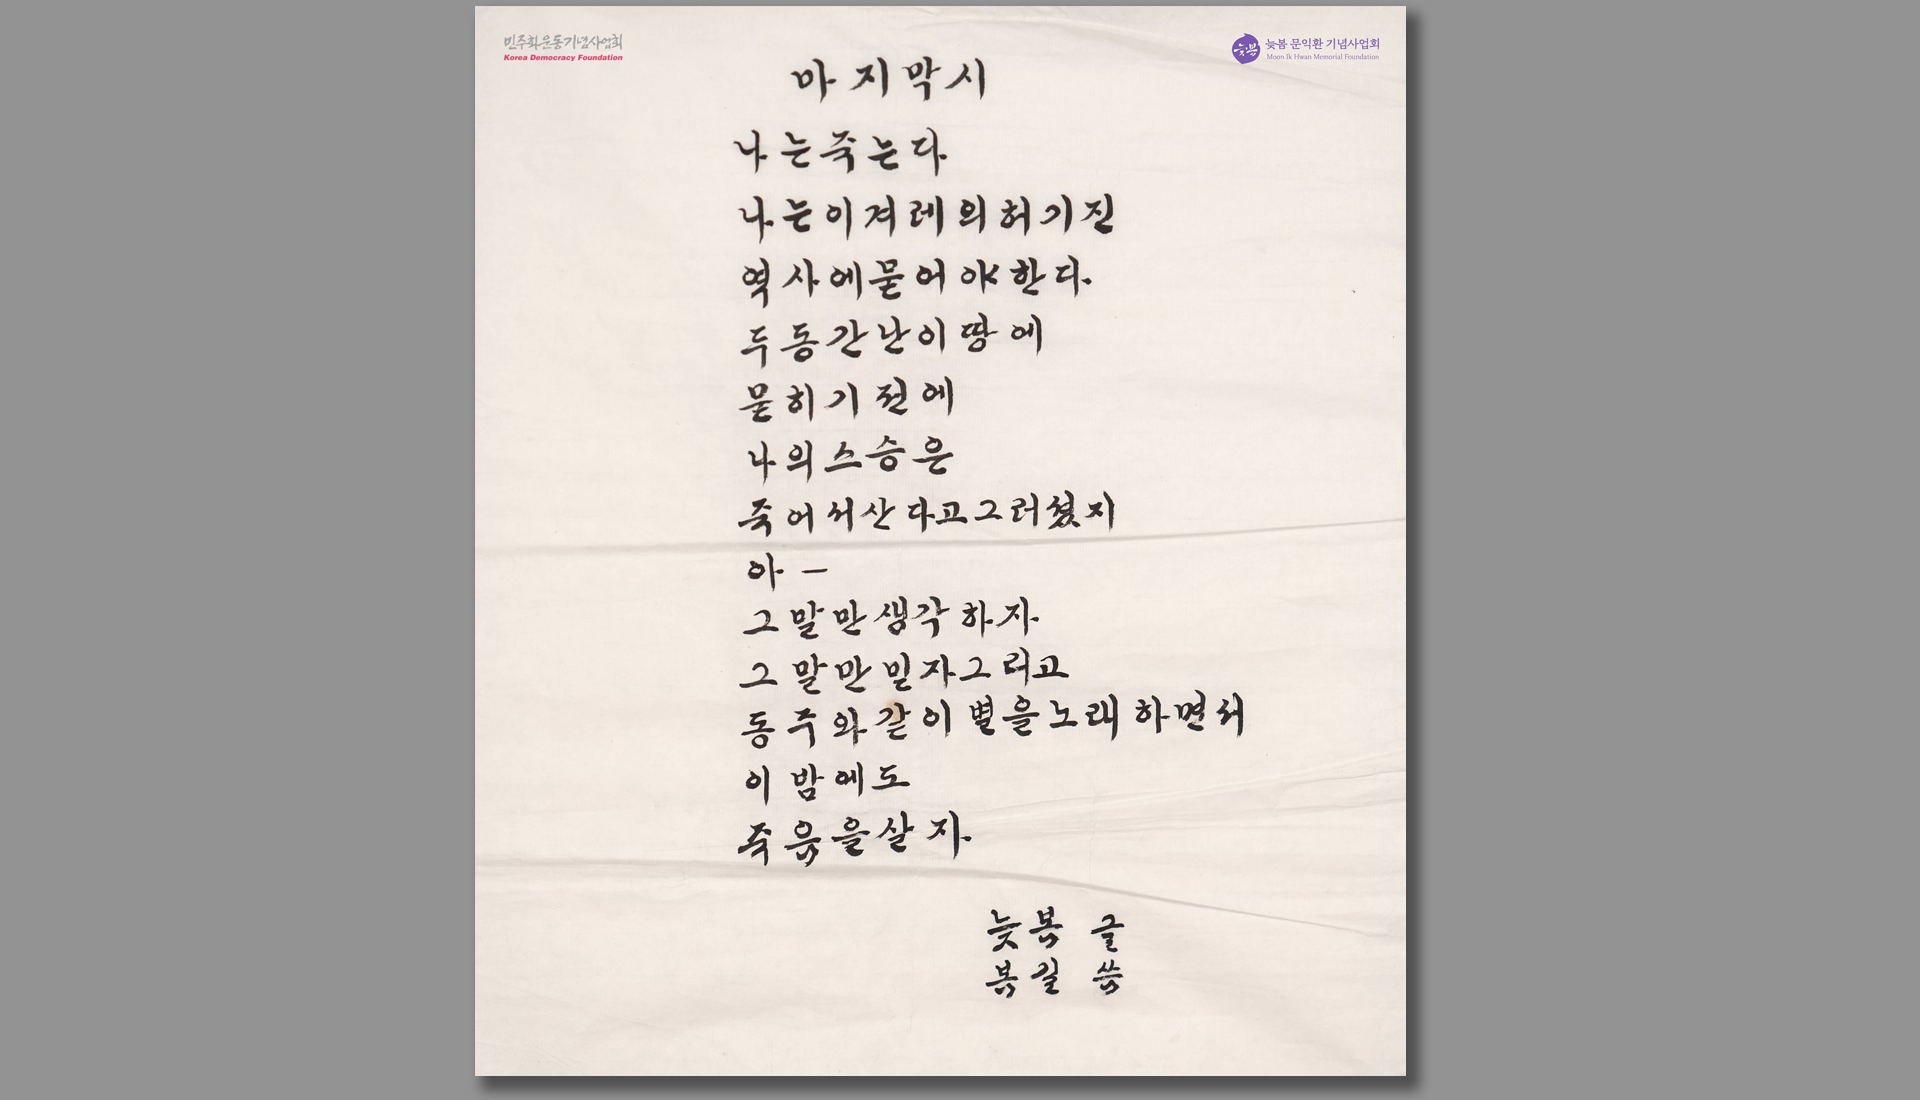 민주화운동기념사업회
Korea Democracy Foundation
늦봄
늦봄 문익환 기념사업회
Moon Ik Hwan Memorial Foundation
마지막시
나는죽는다
나는이겨레의허기진
역사에묻어야한다.
두동간난이땅에
묻히기전에
나의스승은
죽어서산다고그러셨지
아 —
그말만생각하자
그말만믿자그리고
동주와같이별을노래하면서
이밤에도
죽음을살자.
늦봄 글
봄길 씀